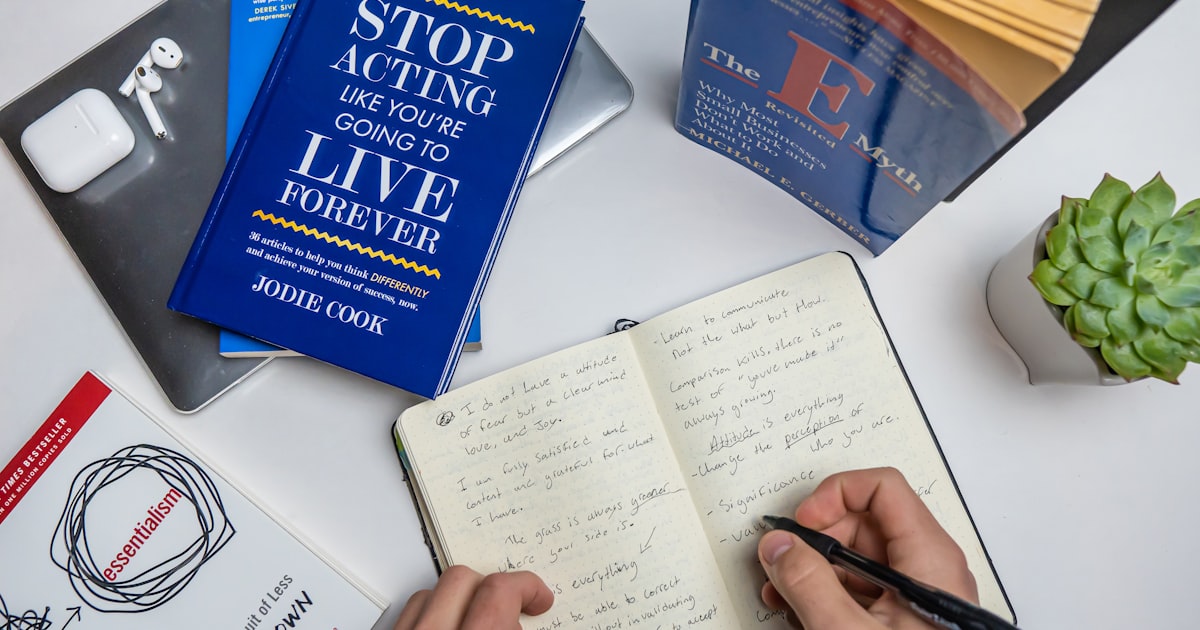 DEREK SIV
entrepreneur,
STOP
ACTING
LIKE YOU'RE
GOING TO
LIVE
FOREVER
36 articles to help you think DIFFERENTLY
and achieve your version of success, now.
JODIE COOK
The
E
Revisited
Myth
Why Most
Small Businesses
Don't Work and
What to Do
About It
MICHAEL E. GERBER
TIMES BESTSELLER
ONE MILLION COPIES SOLD
essentialism
uit of Less
OWN
I do not have a attitude
of fear but a clear mind
love, and Joy.
I am fully satisfied and
content and grateful for what
I have.
The grass is always greener
where your side is.
is everything
must be able to correct
without invalidating
to accept
-Learn to communicate
Not the what but How.
Comparison kills, there is no
test of "you've made it"
always growing.
Attitude is everything
-Change the perception of
who you are.
- Significance